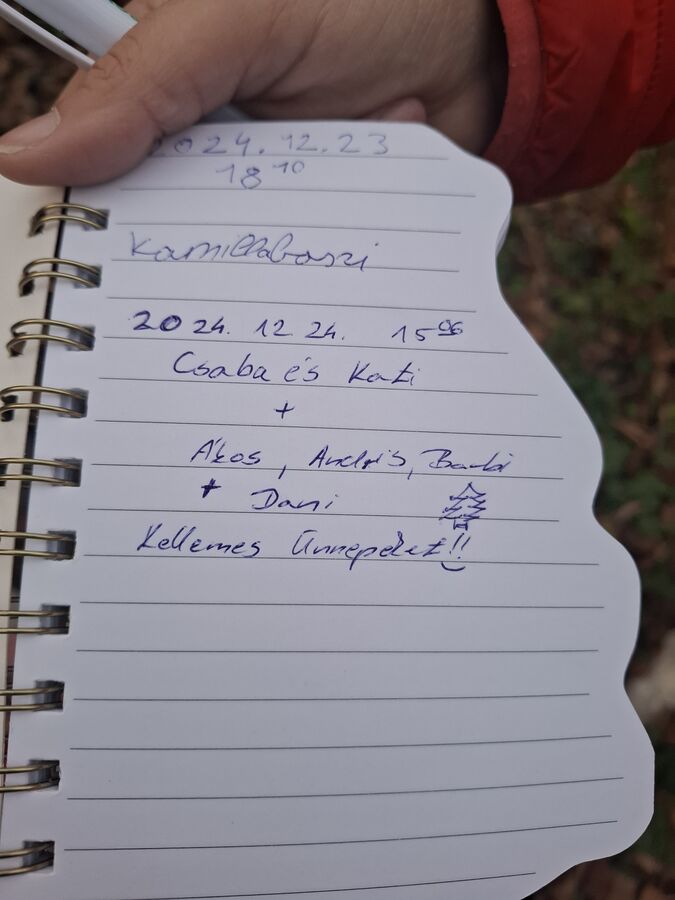 2024.12.23
18¹⁰
Kamillabaszi
2024. 12 24. 15⁰⁶
Csaba és Kati
+
Ákos, Andris, Barbi
+ Dani
Kellemes Ünnepeket!!